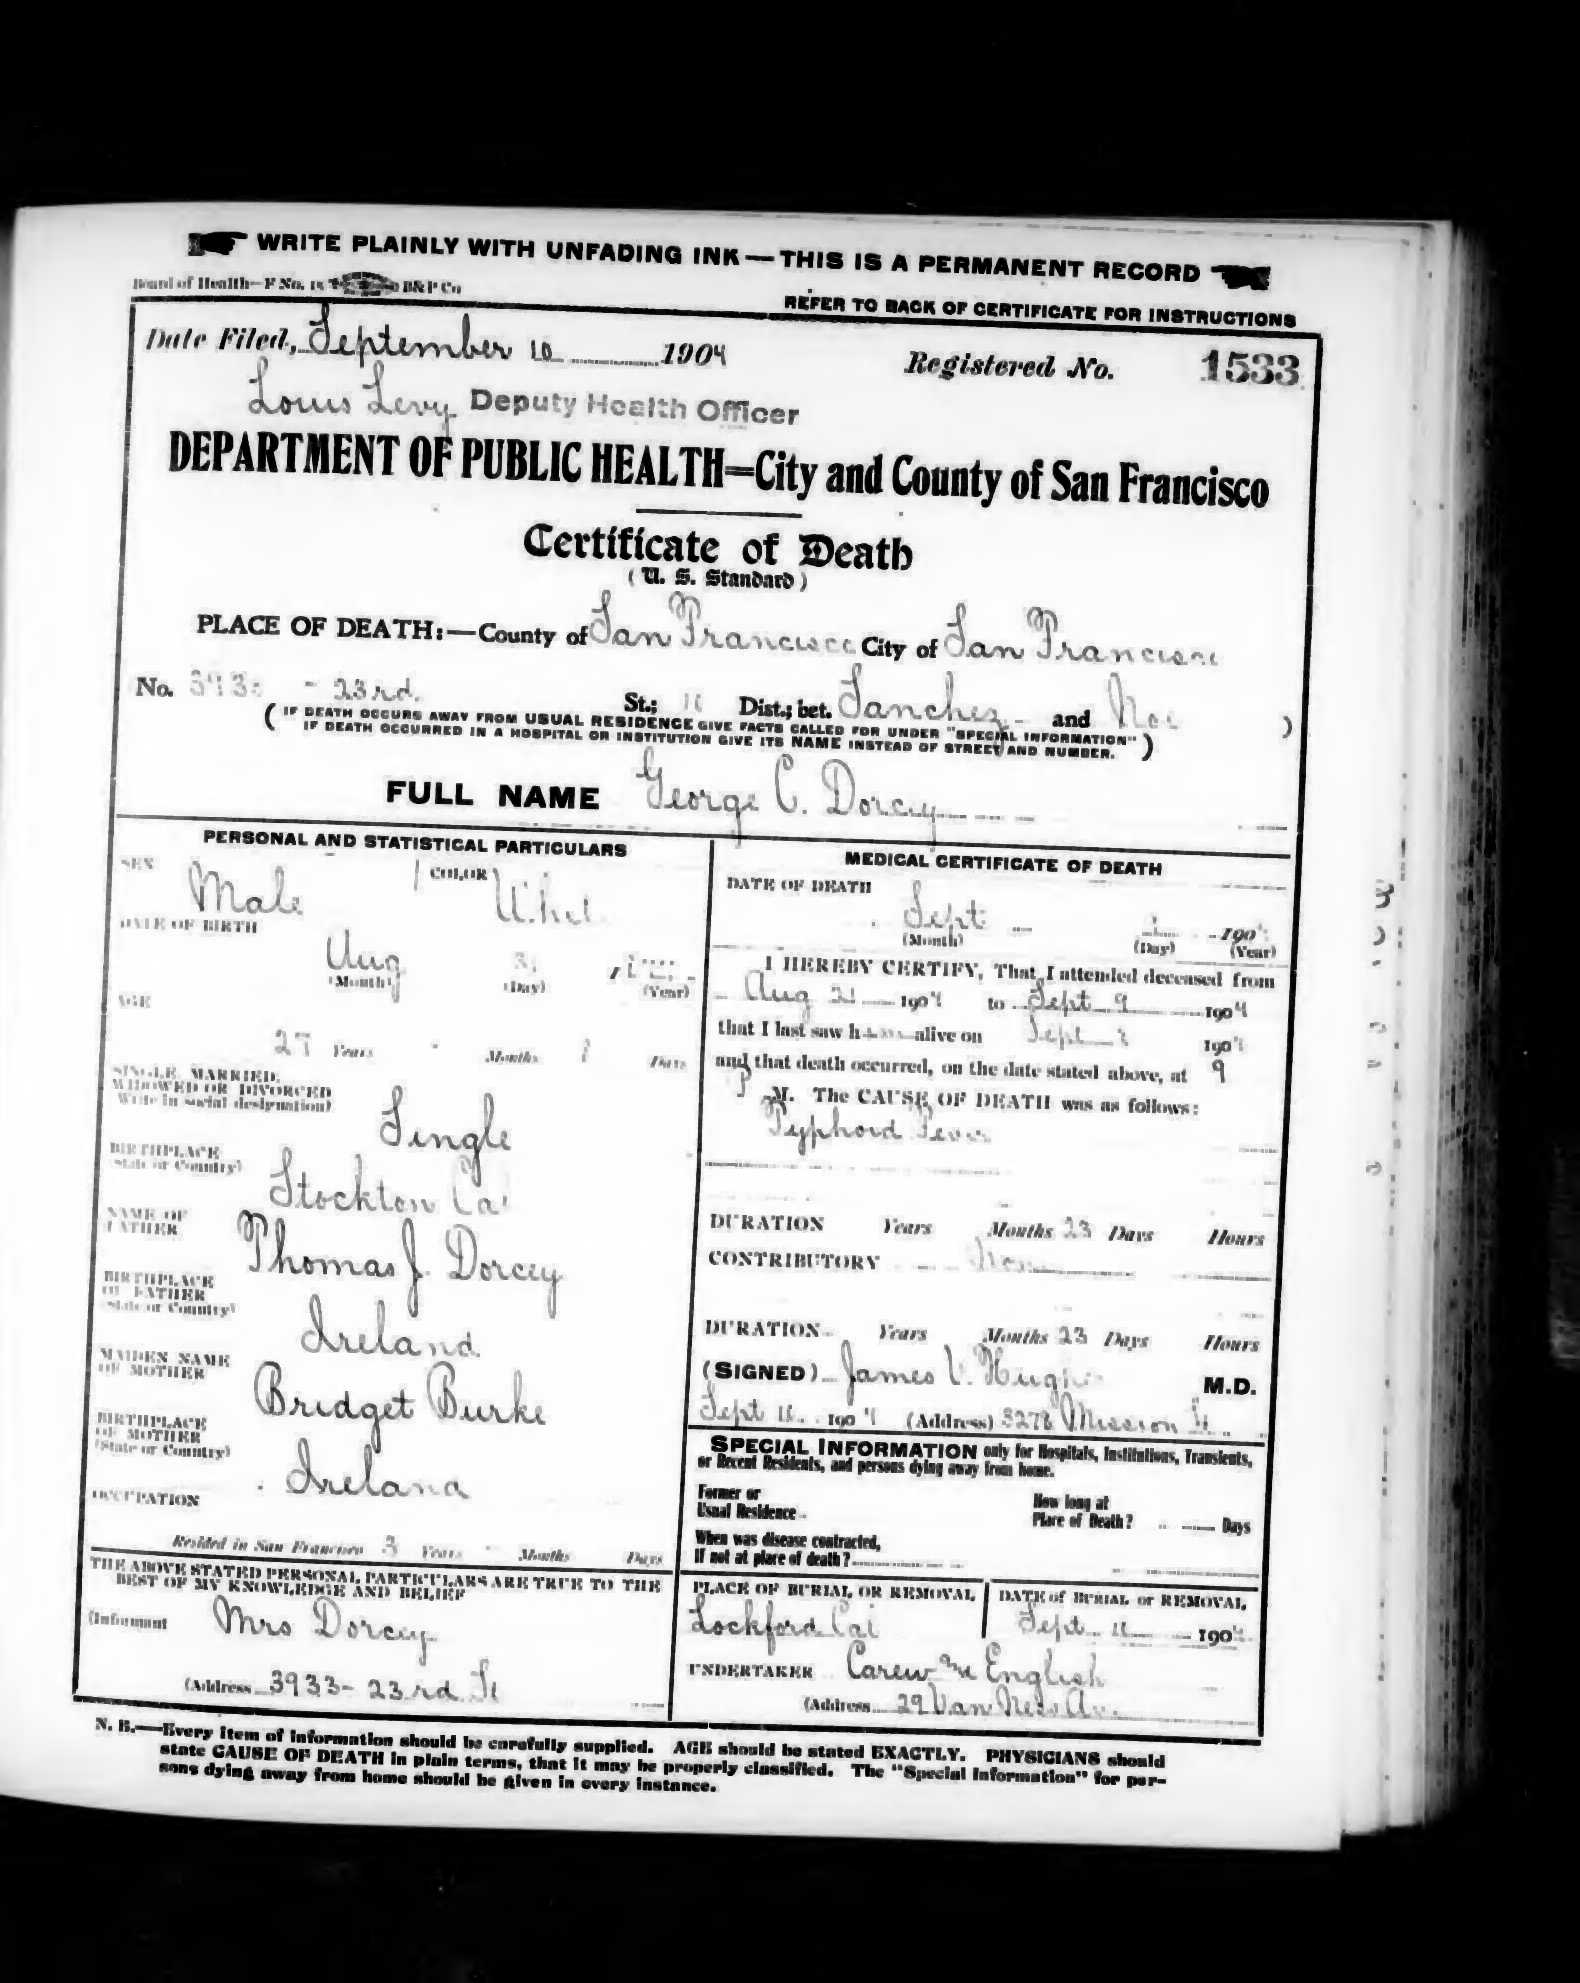 WRITE PLAINLY WITH UNFADING INK — THIS IS A PERMANENT RECORD
Board of Health—F No. B&P Co
REFER TO BACK OF CERTIFICATE FOR INSTRUCTIONS
Date Filed, September 10 1904
Registered No. 1533
Louis Levy Deputy Health Officer
DEPARTMENT OF PUBLIC HEALTH=City and County of San Francisco
Certificate of Death
(U. S. Standard)
PLACE OF DEATH:—County of San Francisco City of San Francisco
No. - 23rd. St.; Dist.; bet. Sanchez and Noe )
( IF DEATH OCCURS AWAY FROM USUAL RESIDENCE GIVE FACTS CALLED FOR UNDER "SPECIAL INFORMATION"
IF DEATH OCCURRED IN A HOSPITAL OR INSTITUTION GIVE ITS NAME INSTEAD OF STREET AND NUMBER. )
FULL NAME George C. Dorcey
PERSONAL AND STATISTICAL PARTICULARS
SEX COLOR
Male
DATE OF BIRTH
Aug
(Month) (Day) (Year)
AGE
27 Years Months Days
SINGLE, MARRIED,
WIDOWED OR DIVORCED
(Write in social designation)
Single
BIRTHPLACE
(State or Country)
Stockton Cal
NAME OF
FATHER
Thomas J. Dorcey
BIRTHPLACE
OF FATHER
(State or Country)
Ireland
MAIDEN NAME
OF MOTHER
Bridget Burke
BIRTHPLACE
OF MOTHER
(State or Country)
Ireland
OCCUPATION
Resided in San Francisco 3 Years Months Days
THE ABOVE STATED PERSONAL PARTICULARS ARE TRUE TO THE
BEST OF MY KNOWLEDGE AND BELIEF
(Informant Mrs Dorcey
(Address 3933- 23rd St
MEDICAL CERTIFICATE OF DEATH
DATE OF DEATH
Sept 190
(Month) (Day) (Year)
I HEREBY CERTIFY, That I attended deceased from
Aug 1904 to Sept 9 1904
that I last saw h alive on Sept 190
and that death occurred, on the date stated above, at 9
P M. The CAUSE OF DEATH was as follows:
Typhoid Fever
DURATION Years Months 23 Days Hours
CONTRIBUTORY
DURATION Years Months 23 Days Hours
(SIGNED) James V. M.D.
Sept 1904 (Address) 3278 Mission St
SPECIAL INFORMATION only for Hospitals, Institutions, Transients,
or Recent Residents, and persons dying away from home.
Former or
Usual Residence
How long at
Place of Death? Days
When was disease contracted,
If not at place of death?
PLACE OF BURIAL OR REMOVAL
Lockford Cal
DATE of BURIAL or REMOVAL
Sept 11 190
UNDERTAKER Carew & English
(Address 29 Van Ness Av.
N. B.—Every item of information should be carefully supplied. AGE should be stated EXACTLY. PHYSICIANS should
state CAUSE OF DEATH in plain terms, that it may be properly classified. The "Special Information" for per-
sons dying away from home should be given in every instance.